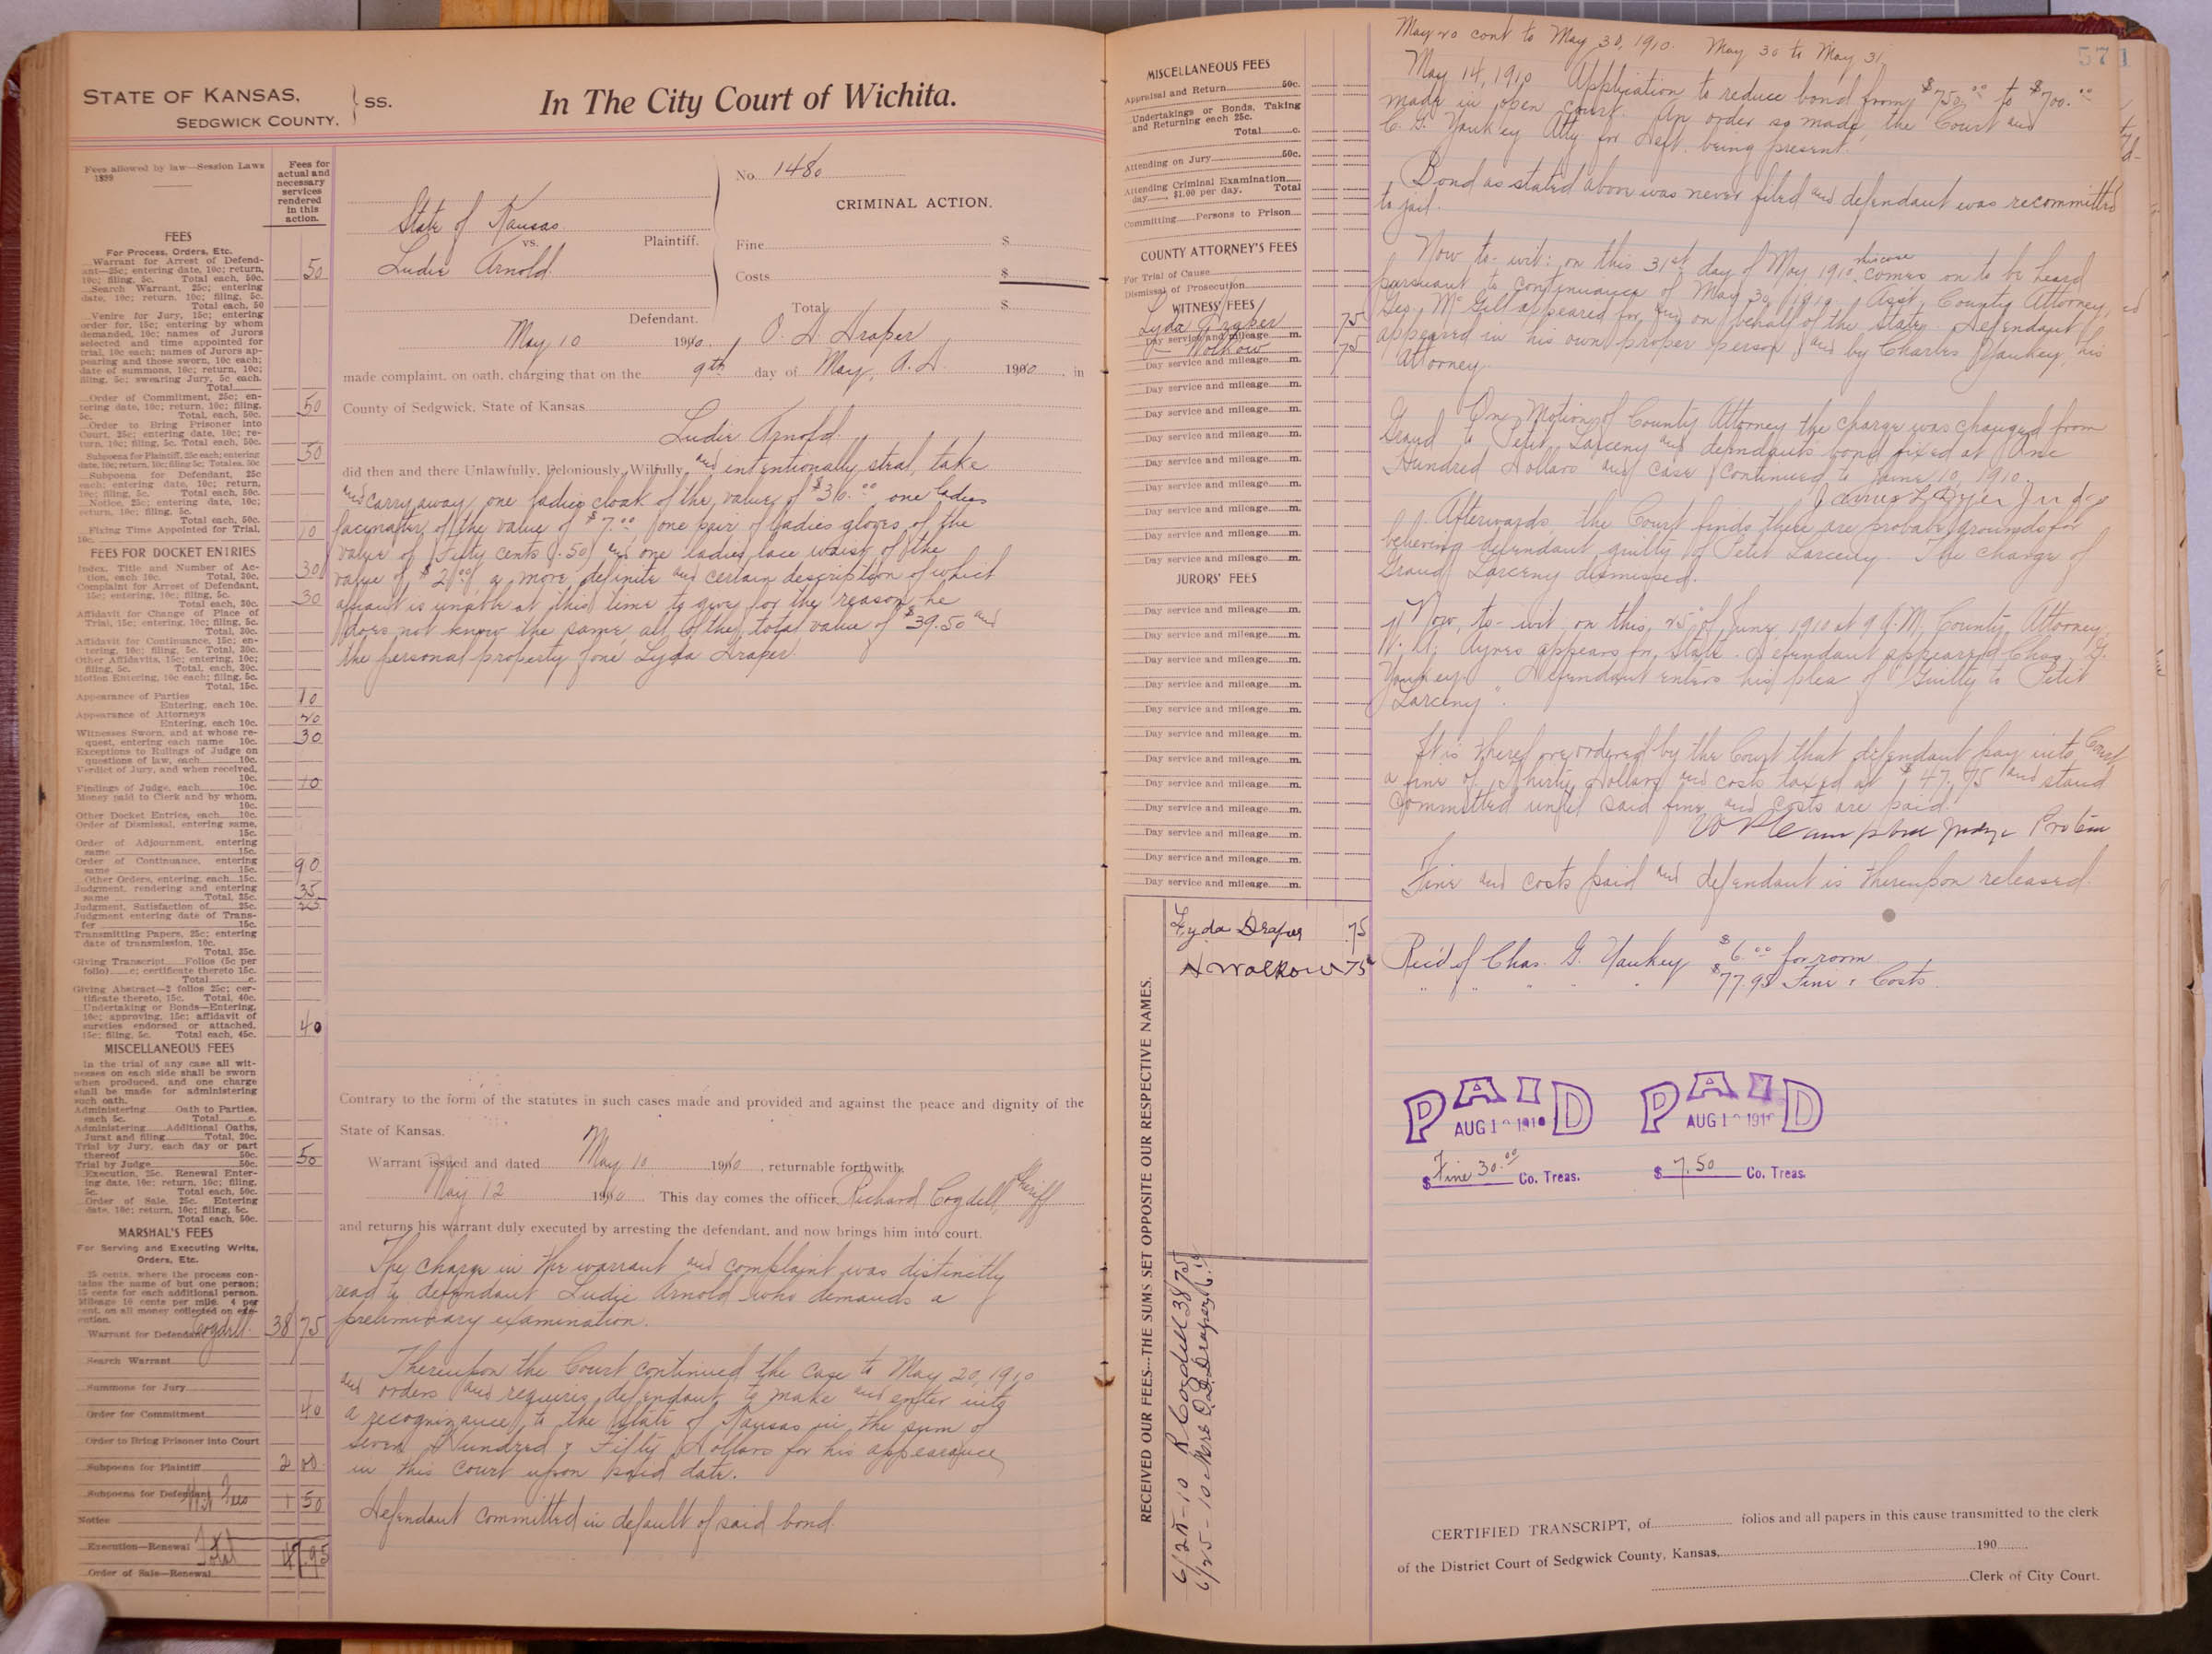 STATE OF KANSAS,
SEDGWICK COUNTY. } ss.
In The City Court of Wichita.
Fees allowed by law—Session Laws
1899
Fees for
actual and
necessary
services
rendered
in this
action.
FEES
For Process, Orders, Etc.
Warrant for Arrest of Defend-
ant—25c; entering date, 10c; return,
10c; filing, 5c. Total each, 50c. 50
Search Warrant, 25c; entering
date, 10c; return, 10c; filing, 5c.
Total each, 50
Venire for Jury, 15c; entering
order for, 15c; entering by whom
demanded, 10c; names of Jurors
selected and time appointed for
trial, 10c each; names of Jurors ap-
pearing and those sworn, 10c each;
date of summons, 10c; return, 10c;
filing, 5c; swearing Jury, 5c each.
Total
Order of Commitment, 25c; en-
tering date, 10c; return, 10c; filing,
5c. Total, each, 50c. 50
Order to Bring Prisoner into
Court, 25c; entering date, 10c; re-
turn, 10c; filing, 5c. Total each, 50c.
Subpoena for Plaintiff, 25c each; entering
date, 10c; return, 10c; filing 5c; Total ea. 50c 50
Subpoena for Defendant, 25c
each; entering date, 10c; return,
10c; filing, 5c. Total each, 50c.
Notice, 25c; entering date, 10c;
return, 10c; filing, 5c.
Total each, 50c.
Fixing Time Appointed for Trial,
10c. 10
FEES FOR DOCKET ENTRIES
Index, Title and Number of Ac-
tion, each 10c. Total, 30c. 30
Complaint for Arrest of Defendant,
15c; entering, 10c; filing, 5c.
Total each, 30c. 30
Affidavit for Change of Place of
Trial, 15c; entering, 10c; filing, 5c.
Total, 30c.
Affidavit for Continuance, 15c; en-
tering, 10c; filing, 5c. Total, 30c.
Other Affidavits, 15c; entering, 10c;
filing, 5c. Total, each, 30c.
Motion Entering, 10c each; filing, 5c.
Total, 15c.
Appearance of Parties
Entering, each 10c. 10
Appearance of Attorneys
Entering, each 10c. 20
Witnesses Sworn, and at whose re-
quest, entering each name 10c. 30
Exceptions to Rulings of Judge on
questions of law, each 10c.
Verdict of Jury, and when received,
10c.
Findings of Judge, each 10c. 10
Money paid to Clerk and by whom,
10c.
Other Docket Entries, each 10c.
Order of Dismissal, entering same,
15c.
Order of Adjournment, entering
same 15c.
Order of Continuance, entering
same 15c. 90
Other Orders, entering, each 15c.
Judgment, rendering and entering
same Total, 25c. 35
Judgment, Satisfaction of 25c.
Judgment entering date of Trans-
fer 15c.
Transmitting Papers, 25c; entering
date of transmission, 10c.
Total, 35c.
Giving Transcript Folios (5c per
folio) c; certificate thereto 15c.
Total c.
Giving Abstract—2 folios 25c; cer-
tificate thereto, 15c. Total, 40c.
Undertaking or Bonds—Entering,
10c; approving, 15c; affidavit of
sureties endorsed or attached,
15c; filing, 5c. Total each, 45c. 40
MISCELLANEOUS FEES
In the trial of any case all wit-
nesses on each side shall be sworn
when produced, and one charge
shall be made for administering
such oath.
Administering Oath to Parties,
each 5c. Total c.
Administering Additional Oaths,
Jurat and filing Total, 20c.
Trial by Jury, each day or part
thereof 50c.
Trial by Judge 50c. 50
Execution, 25c. Renewal Enter-
ing date, 10c; return, 10c; filing,
5c. Total each, 50c.
Order of Sale, 25c. Entering
date, 10c; return, 10c; filing, 5c.
Total each, 50c.
MARSHAL'S FEES
For Serving and Executing Writs,
Orders, Etc.
25 cents, where the process con-
tains the name of but one person;
15 cents for each additional person.
Mileage 10 cents per mile. 4 per
cent. on all money collected on exe-
cution.
Warrant for Defendant Cogdell 38 75
Search Warrant
Summons for Jury
Order for Commitment 40
Order to Bring Prisoner into Court
Subpoena for Plaintiff 2 00
Subpoena for Defendant Wit Fees 1 50
Notice
Execution—Renewal Total 47 95
Order of Sale—Renewal
State of Kansas
vs. Plaintiff.
Ludie Arnold
Defendant.
No. 1480
CRIMINAL ACTION.
Fine $
Costs $
Total $
May 10 1910, O. D. Draper
made complaint, on oath, charging that on the 9th day of May, A.D. 1910, in
County of Sedgwick, State of Kansas
Ludie Arnold
did then and there Unlawfully, Feloniously, Wilfully, and intentionally steal, take
and carry away one ladies cloak of the value of $30.00 one ladies
facinator of the value of $7.00 one pair of ladies gloves of the
value of Fifty cents (.50) and one ladies lace waist of the
value of $2.00 a more definite and certain description of which
affiant is unable at this time to give for the reason he
does not know the same, all of the total value of $39.50 and
the personal property of one Lyda Draper.
Contrary to the form of the statutes in such cases made and provided and against the peace and dignity of the
State of Kansas.
Warrant issued and dated May 10 1910, returnable forthwith.
May 12 1910. This day comes the officer Richard Cogdell, Sheriff
and returns his warrant duly executed by arresting the defendant, and now brings him into court.
The charge in the warrant and complaint was distinctly
read to defendant Ludie Arnold who demands a
preliminary examination.
Thereupon the Court continued the case to May 20, 1910
and orders and requires defendant to make and enter into
a recognizance to the State of Kansas in the sum of
Seven Hundred & Fifty Dollars for his appearance
in this court upon said date.
Defendant committed in default of said bond.
MISCELLANEOUS FEES
Appraisal and Return 50c.
Undertakings or Bonds, Taking
and Returning each 25c.
Total c.
Attending on Jury 50c.
Attending Criminal Examination
day, $1.00 per day. Total
Committing Persons to Prison
COUNTY ATTORNEY'S FEES
For Trial of Cause
Dismissal of Prosecution
WITNESS FEES
Lyda Draper 75
Day service and mileage m.
Wolkow 75
Day service and mileage m.
Day service and mileage m.
Day service and mileage m.
Day service and mileage m.
Day service and mileage m.
Day service and mileage m.
Day service and mileage m.
Day service and mileage m.
Day service and mileage m.
JURORS' FEES
Day service and mileage m.
Day service and mileage m.
Day service and mileage m.
Day service and mileage m.
Day service and mileage m.
Day service and mileage m.
Day service and mileage m.
Day service and mileage m.
Day service and mileage m.
Day service and mileage m.
Day service and mileage m.
Day service and mileage m.
RECEIVED OUR FEES---THE SUMS SET OPPOSITE OUR RESPECTIVE NAMES.
Lyda Draper .75
N Wolkow 75
6/25-10 R Cogdell 38 75
6/25-10 Mrs O.D. Draper
571
May 20 cont to May 30, 1910. May 30 to May 31
May 14, 1910 Application to reduce bond from $750.00 to $700.00
made in open Court. An order so made, the Court and
C. G. Yankey Atty for Deft. being present.
Bond as stated above was never filed and defendant was recommitted
to jail.
Now to-wit: on this 31st day of May 1910, this case comes on to be heard
pursuant to continuance of May 30, 1910. Asst. County Attorney,
Geo. McGill appeared for and on behalf of the State. Defendant
appeared in his own proper person and by Charles Yankey, his
Attorney.
On Motion of County Attorney the charge was changed from
Grand to Petit Larceny and defendants bond fixed at One
Hundred Dollars and case continued to June 10, 1910.
Judge
Afterwards the Court finds there are probable grounds for
believing defendant guilty of Petit Larceny. The charge of
Grand Larceny dismissed.
Now, to-wit on this, 25" of June 1910 at 9 A.M. County Attorney
W. A. Ayres appears for State. Defendant appeared Chas. G.
Yankey. Defendant enters his plea of "Guilty to Petit
Larceny".
It is therefore ordered by the Court that defendant pay into Court
a fine of Thirty Dollars and costs taxed at $47.95 and stand
committed until said fine and costs are paid.
Judge Pro tem
Fine and costs paid and defendant is thereupon released.
Rec'd of Chas. G. Yankey $6.00 for room
" " " " $77.95 Fine & Costs.
PAID
AUG 1 1910
$ Fine 30.00 Co. Treas.
PAID
AUG 1 1910
$ 7.50 Co. Treas.
CERTIFIED TRANSCRIPT, of folios and all papers in this cause transmitted to the clerk
of the District Court of Sedgwick County, Kansas, 190
Clerk of City Court.